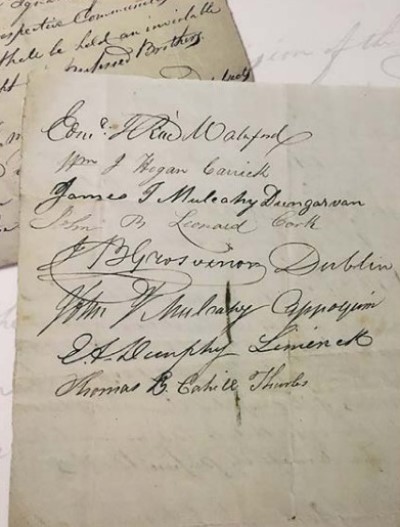 spective Community
shall be held an inviolable
professed Brothers
Edm.d I Rice Waterford
Wm J Hogan Carrick
James I Mulcahy Dungarvan
John B Leonard Cork
J B Grosvenor Dublin
John P Mulcahy Cappoquin
E A Dunphy Limerick
Thomas B. Cahill Thurles